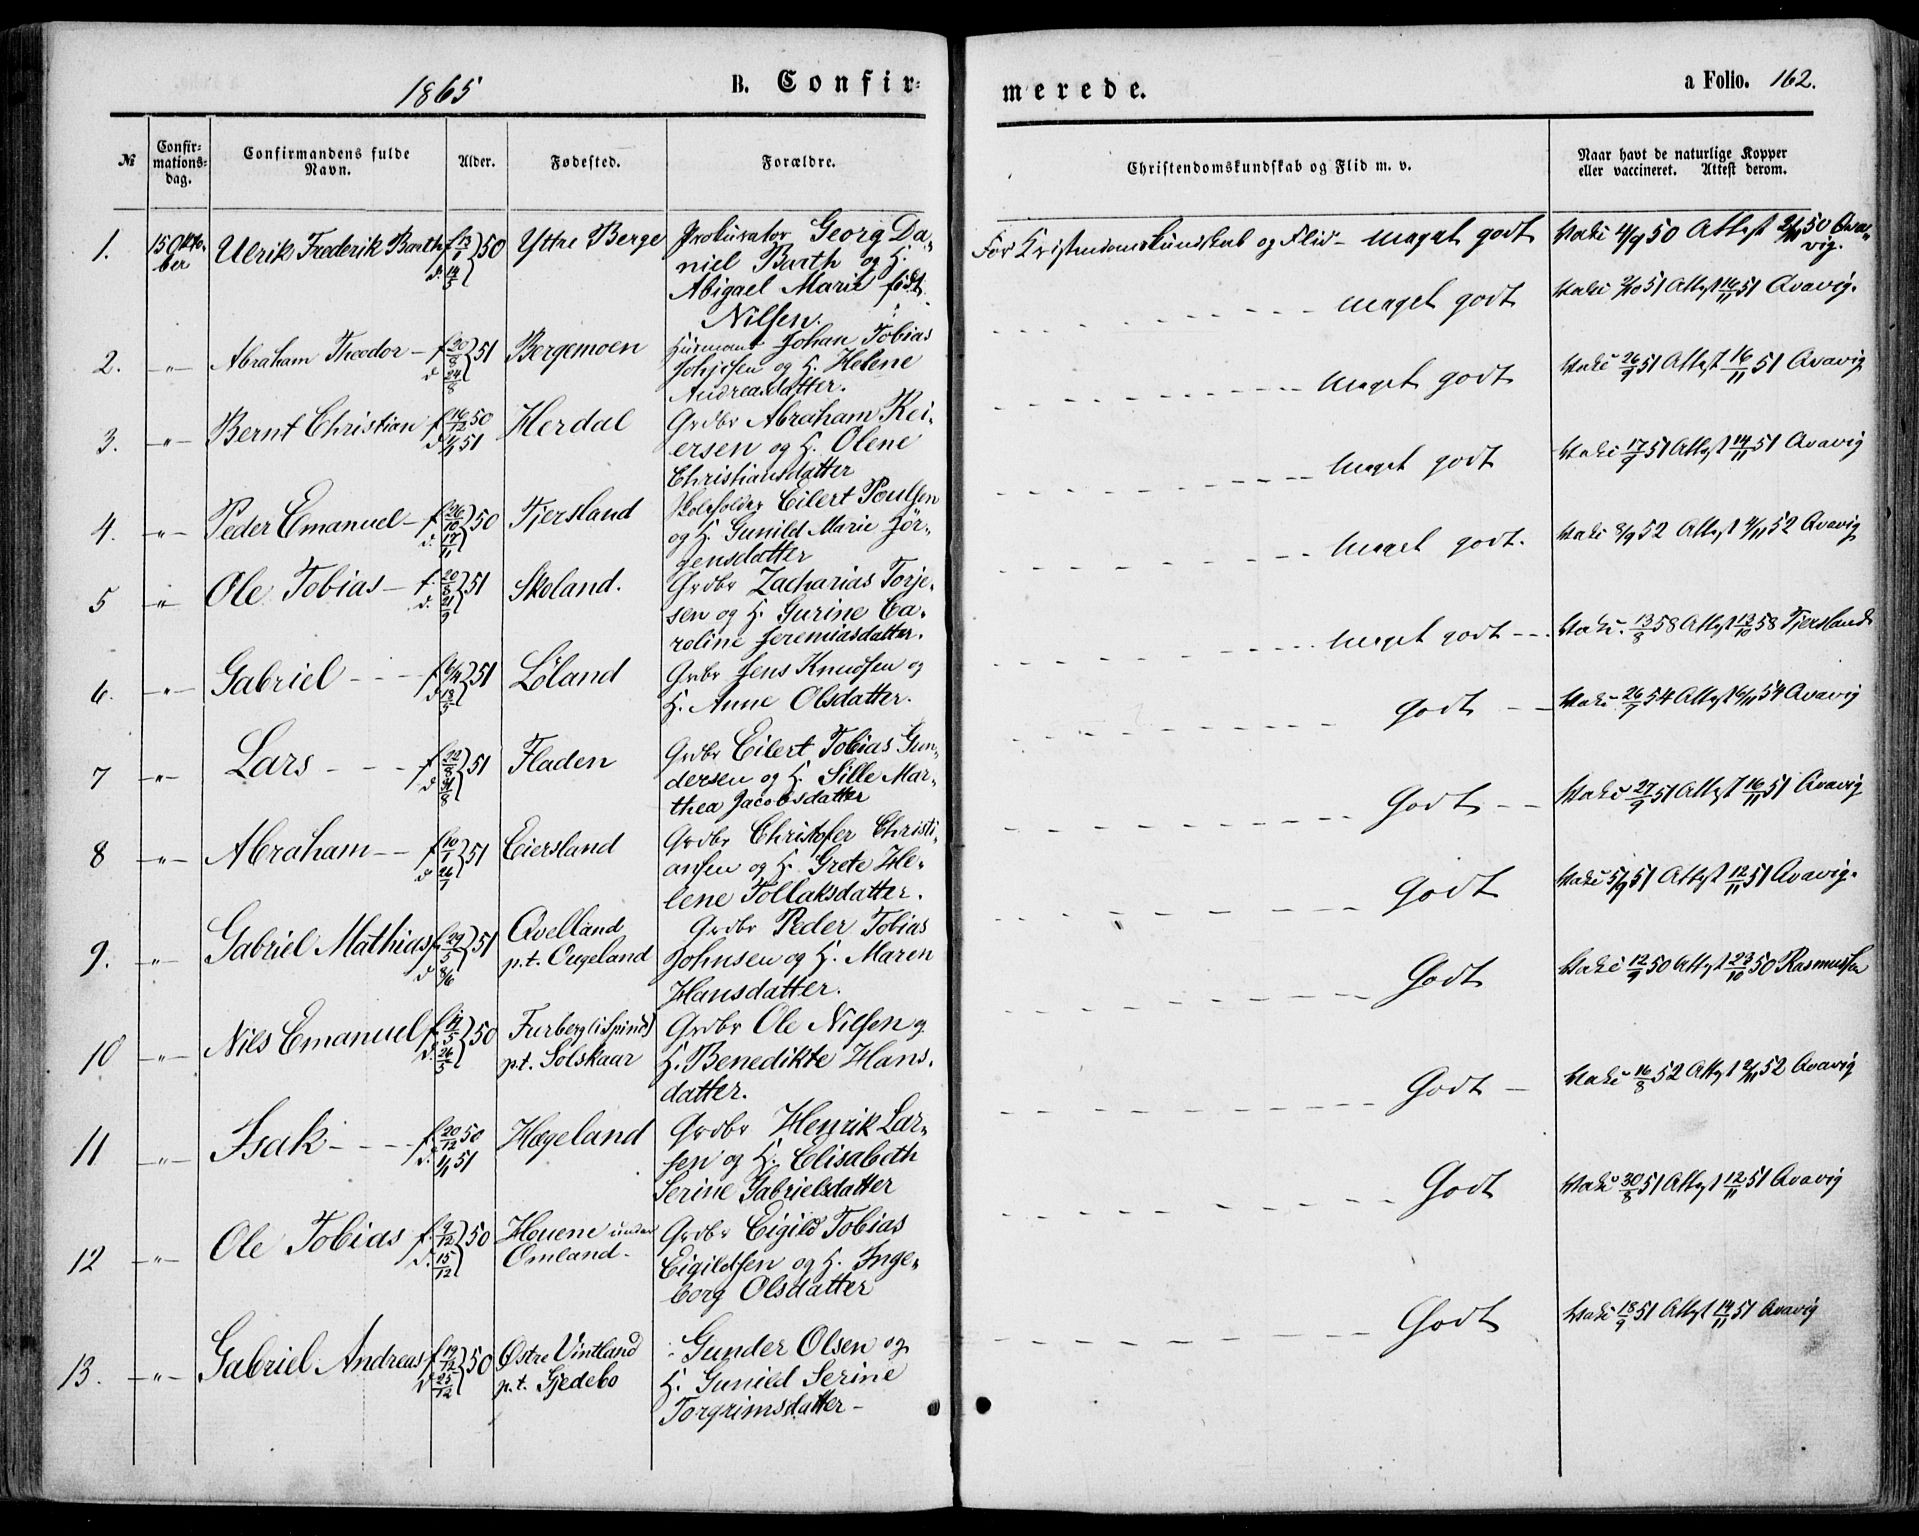 1865 B. Confir=
merede. a Folio. 162.
№ Confir=mations=dag. Confirmandens fulde Navn. Alder. Fødested. Forældre.
Christendomskundskab og Flid m. v. Naar havt de naturlige Kopper eller vaccineret. Attest derom.
1. 15 Okto-ber Ulrik Frederik Barth 50 Yttre Berge Prokurator Georg Da-
niel Barth og H.
Abigael Marie født
Nilsen.
For Kristendomskundskab og Flid – meget godt Vake 4/9 50 Attest 50 Avavig.
2. -"- Abraham Theodor – f 20/8 d 24/8 51 Bergemoen Johan Tobias
og H. Helene
Andreasdatter.
meget godt 51 Attest 16/11 51 Avavig.
3. -"- Bernt Christian f 16/12 50 d 1/1 51 Herdal Grdbr Abraham Rei-
ersen og H. Olene
Christiansdatter
meget godt Vake 26/9 51 Attest 16/11 51 Avavig
4. -"- Peder Emanuel – f 26/10 d. 17/11 50 Tjersland Skoleholder Eilert Poulsen
og H. Gunild Marie Jør-
gensdatter
meget godt Vake 17/9 51 Attest 14/11 51 Avavig
5 -"- Ole Tobias – f. 20/8 d. 21/9 51 Skoland. Grdbr Zacharias Torje-
sen og H. Gurine Ca-
roline Jeremiasdatter.
meget godt. 52 Attest 52 Avavig
6. -"- Gabriel - - - 51 Løland Grbr Jens Knudsen og
H. Anne Olsdatter.
meget godt --- Vake. 13/8 58 Attest 12/10 58 Tjersland
7 -"- Lars - - - 51 Fladen Grdbr Eilert Tobias Gun-
dersen og H. Sille Mar-
thea Jacobsdatter
godt -- Vake 54 Attest 54 Avavig
8 -"- Abraham -- f 10/1 d 26/1 51 Eiersland Grdbr Christofer Christi-
ansen og H. Grete He-
lene Tollaksdatter.
Godt -- Vake 27/9 51 Attest 16/11 51 Avavig
9. -"- Gabriel Mathias f. 29/5 d 8/6 51 Qvelland
p.t. Øugeland Grdbr Peder Tobias
Johnsen og H. Maren
Hansdatter.
Godt Vake 5/9 51 Attest 12/11 51 Avavig.
10 -"- Nils Emanuel f. d. 26/5 50 Furberg (i Spind)
p.t. Solskaar Grdbr Ole Nilsen og
H. Benedikte Hans-
datter.
Godt Vake 12/9 50 Attest 23/10 50 Rasmussen
11 -"- Isak - - - - f. 20/12 50 d. 1/1 51 Hægeland Grdbr Henrik Lar-
sen og H. Elisabeth
Serine Gabrielsdatter
Godt – Vake 16/8 52 Attest 52 Avavig
12 -"- Ole Tobias f. 9/12 d. 15/12 50 Houene under
Omland. Grdbr Eigild Tobias
Eigildsen og H. Inge-
borg Olsdatter
Godt Vake 30/8 51 Attest 12/11 51 Avavig
13. -"- Gabriel Andreas f 19/12 d 25/12 50 Østre Vintland
p.t. Gjedebo Gunder Olsen og
H. Gunild Serine
Torgrimsdatter –
Godt Vake 18/9 51 Attest 14/11 51 Avavig